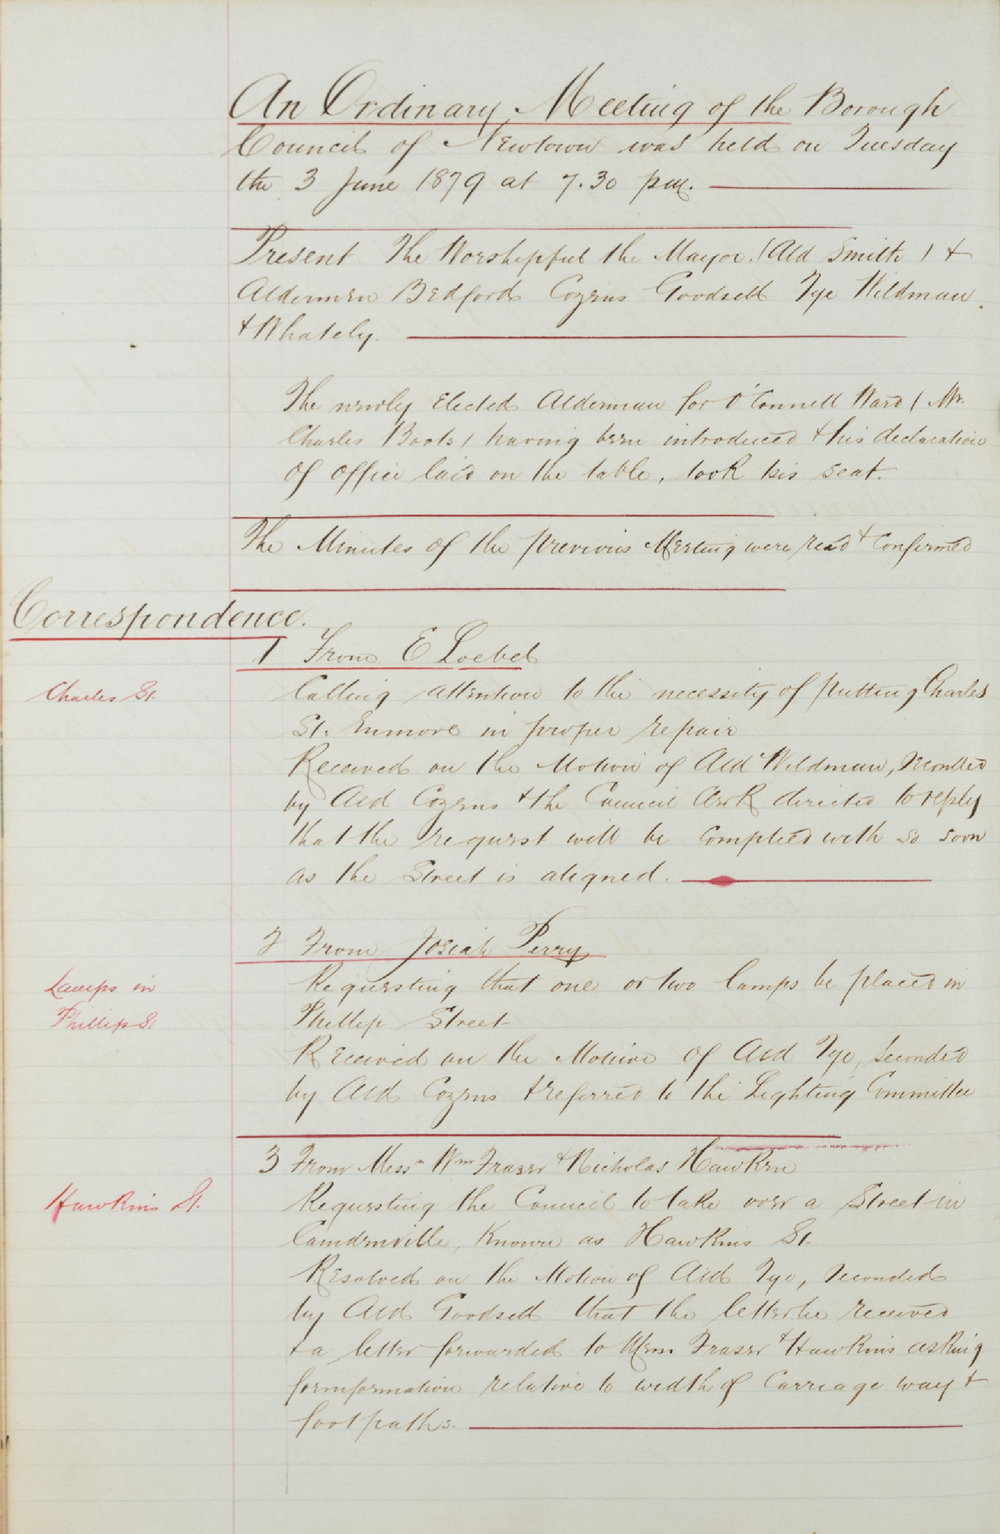 An Ordinary Meeting of the Borough
Council of Newtown was held on Tuesday
the 3 June 1879 at 7.30 pm.
Present The Worshipful the Mayor (Ald Smith) &
Aldermen Bedford Cozens Goodsell Tye Wildman
& Whately.
The newly Elected Alderman for O'Connell Ward (Mr.
Charles Boots) having been introduced & his declaration
of office laid on the table, took his seat.
The Minutes of the previous Meeting were read & Confirmed
Correspondence.
1 From E Loebel
Charles St.
Calling attention to the necessity of putting Charles
St. Enmore in proper repair
Received on the Motion of Ald Wildman, seconded
by Ald Cozens & the Council Clerk directed to reply
that the request will be complied with so soon
as the Street is aligned.
2 From Josiah Perry
Lamps in
Phillip St.
Requesting that one or two lamps be placed in
Phillip Street
Received on the Motion of Ald Tye, seconded
by Ald Cozens & referred to the Lighting Committee
3 From Messrs Wm Fraser & Nicholas Hawken
Hawkins St.
Requesting the Council to take over a Street in
Camdenville, Known as Hawkins St.
Resolved on the Motion of Ald Tye, seconded
by Ald Goodsell that the letter be received
& a letter forwarded to Messrs Fraser & Hawkins asking
for information relative to width of Carriage way &
footpaths.